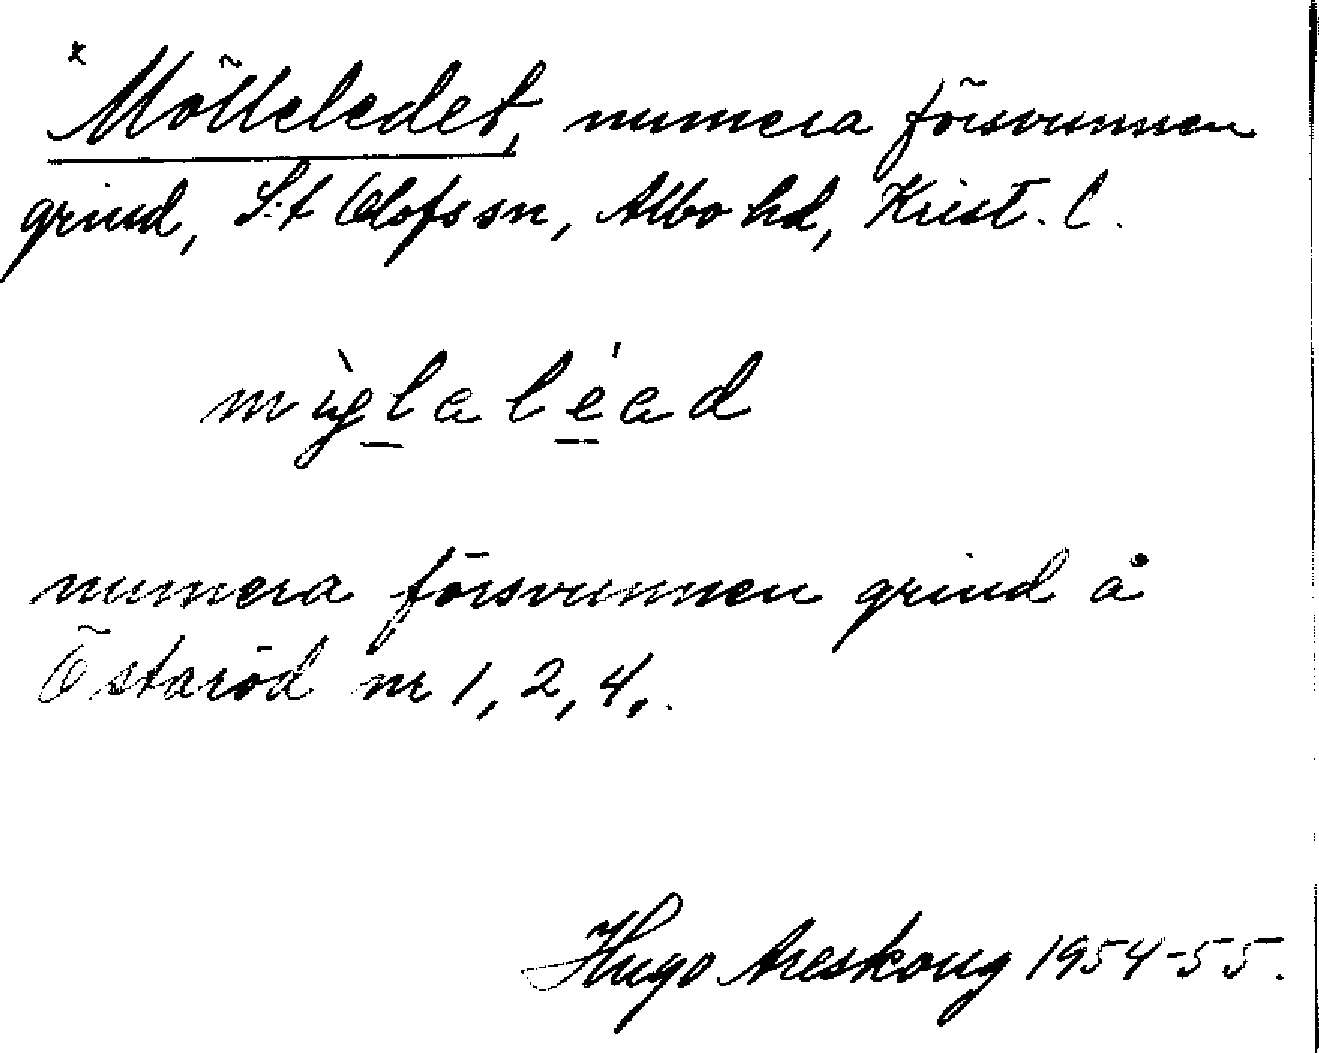 x Mölleledet, numera försvunnen
grind, S:t Olofs sn, Albo hd, Krist. l.
numera försvunnen grind å
Östaröd nr 1, 2, 4,.
Hugo Areskoug 1954-55.